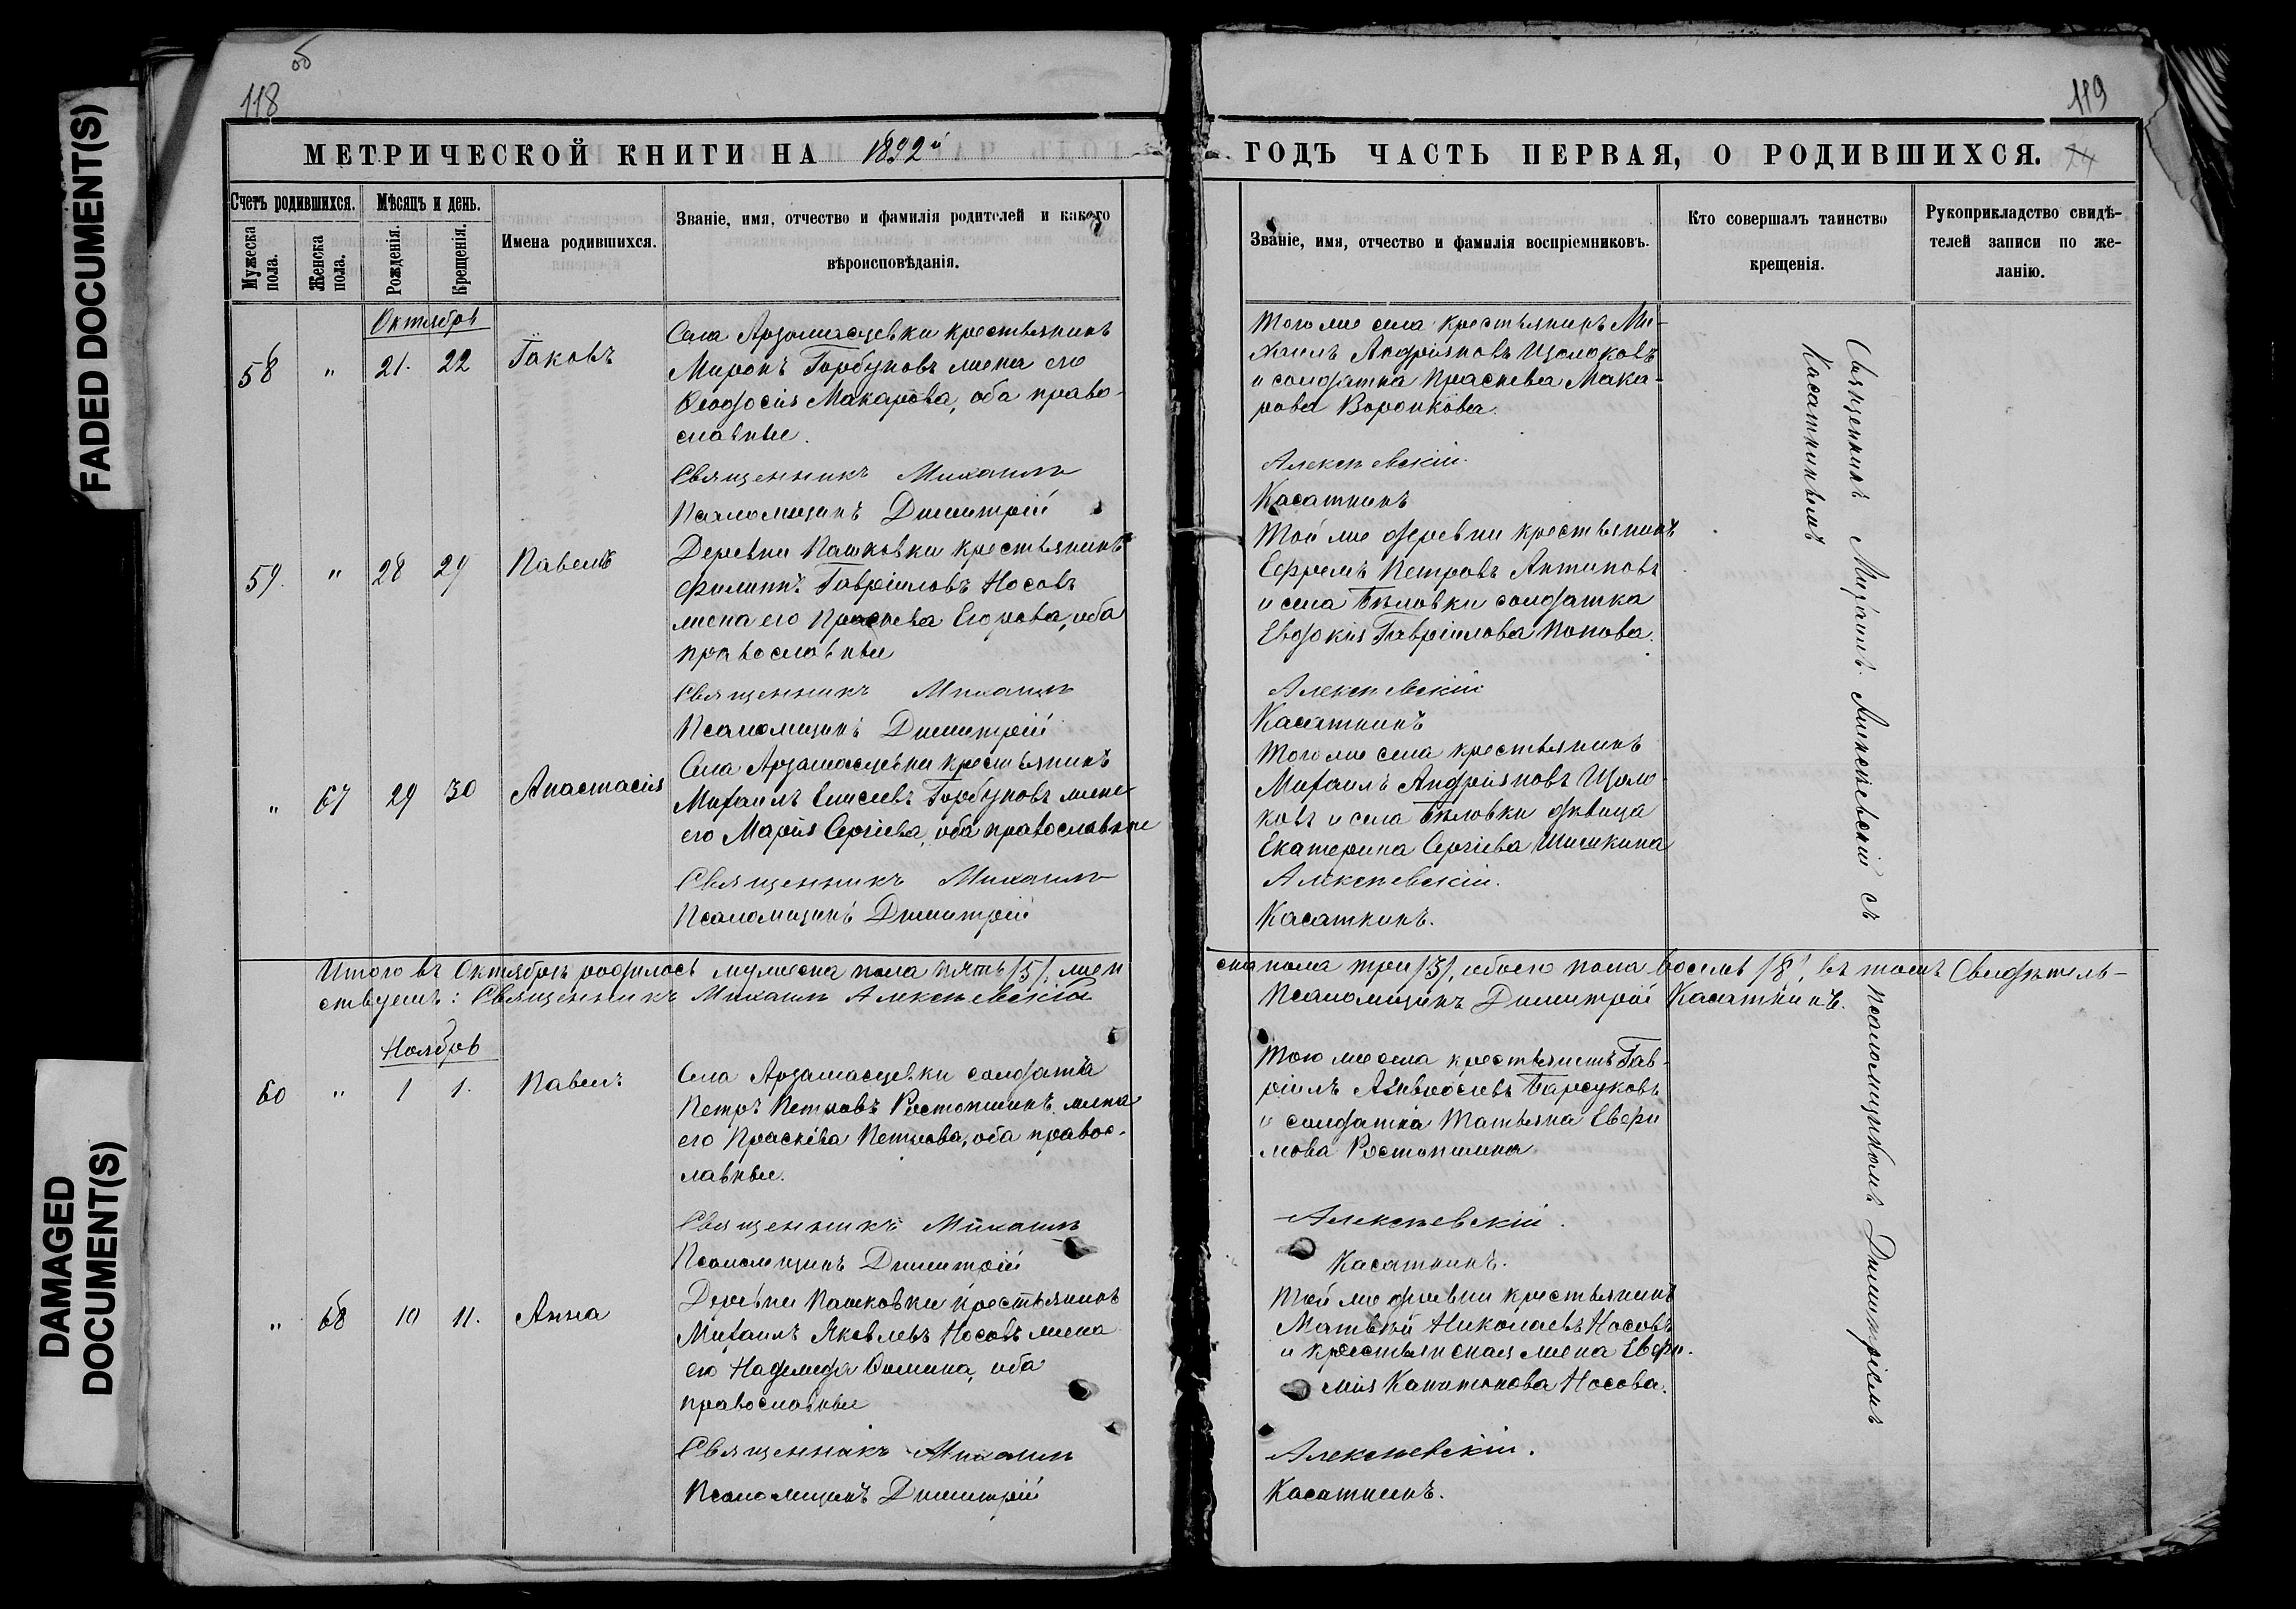 FADED DOCUMENT(S)
DAMAGED
DOCUMENT(S)
об
118
МЕТРИЧЕСКОЙ КНИГИ НА 1892й
Счетъ родившихся.
Мужеска пола.
Женска пола.
Мѣсяцъ и день.
Рожденія.
Крещенія.
Имена родившихся.
Званіе, имя, отчество и фамилія родителей и какого
вѣроисповѣданія.
Октябрь
58 " 21. 22 Іаковъ
Села Арзамасцевки крестьянинъ
Миронъ Горбуновъ жена его
Ѳеодосія Макарова, оба право-
славные.
Священникъ Михаилъ
Псаломщикъ Димитрій
59. " 28 29 Павелъ
Деревни Пашковки крестьянинъ
Филиппъ Гавріиловъ Носовъ
жена его Праскева Егорова, оба
православные
Священникъ Михаилъ
Псаломщикъ Димитрій
" 67 29 30 Анастасія
Села Арзамасцевки крестьянинъ
Михаилъ Елисеевъ Горбуновъ жена
его Марія Сергіева, оба православные
Священникъ Михаилъ
Псаломщикъ Димитрій
Итого въ Октябрѣ родилось мужеска пола пять /5/, жен
ствуемъ: Священникъ Михаилъ Алексѣевскій
Ноябрь
60 " 1 1. Павелъ
Села Арзамасцевки солдатъ
Петръ Петровъ Ростопшинъ жена
его Праскева Петрова, оба правос-
лавные.
Священникъ Михаилъ
Псаломщикъ Димитрій
" 68 10 11. Анна
Деревни Пашковки крестьянинъ
Михаилъ Яковлевъ Носовъ жена
его Надежда Ѳомина, оба
православные
Священникъ Михаилъ
Псаломщикъ Димитрій
119
ГОДЪ ЧАСТЬ ПЕРВАЯ, О РОДИВШИХСЯ.
74
Званіе, имя, отчество и фамилія воспріемниковъ.
Кто совершалъ таинство
крещенія.
Рукоприкладство свидѣ-
телей записи по же-
ланію.
Того же села крестьянинъ Ми-
хаилъ Андріяновъ Щолоковъ
и солдатка Праскева Мака-
рова Воронкова.
Алексѣевскій.
Касаткинъ
Той же деревни крестьянинъ
Ефремъ Петровъ Антиповъ
и села Бѣловки солдатка
Евдокія Гавріилова Попова.
Алексѣевскій
Касаткинъ
Того же села крестьянинъ
Михаилъ Андріяновъ Щоло-
ковъ и села Бѣловки дѣвица
Екатерина Сергіева Шишкина
Алексѣевскій.
Касаткинъ.
ска пола три /3/, обоего пола восемь /8/, въ томъ свидѣтель-
Псаломщикъ Димитрій Касаткинъ.
Того же села крестьянинъ Гав-
ріилъ Барсуковъ
и солдатка Татьяна
мова Ростопшина
Алексѣевскій.
Касаткинъ.
Той же деревни крестьянинъ
Матвѣй Николаевъ Носовъ
и крестьянская жена Евфи-
мія Капитонова Носова.
Алексѣевскій.
Касаткинъ.
Священникъ Михаилъ Алексѣевскій съ
псаломщикомъ Димитріемъ
Касаткинымъ